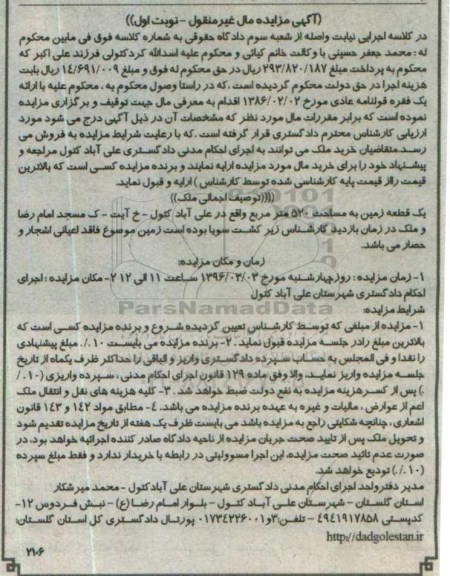 (آگهی مزایده مال غیرمنقول - نوبت اول))
در کلاسه اجرایی نیابت واصله از شعبه سوم دادگاه حقوقی به شماره کلاسه فوق فی مابین محکوم
له : محمد جعفر حسینی با وکالت خانم کیائی و محکوم علیه اسدالله کردکتولی فرزند علی اکبر که
محکوم به پرداخت مبلغ ۲۹۳/۸۲۰/۱۸۷ ریال در حق محکوم له فوق و مبلغ ۱۴/۶۹۱/۰۰۹ ریال بابت
هزینه اجرا در حق دولت محکوم گردیده است .که در راستا وصول محکوم به . محکوم علیه با ارائه
یک فقره قولنامه عادی مورخ ۱۳۸۶/۰۲/۰۲ اقدام به معرفی مال جهت توقیف و برگزاری مزایده
نموده است که برابر مقررات مال مورد نظر که مشخصات آن در ذیل آگهی درج می شود مورد
ارزیابی کارشناس محترم دادگستری قرار گرفته است .که با رعایت شرایط مزایده به فروش می
رسد.متقاضیان خرید ملک می توانند به اجرای احکام مدنی دادگستری علی آباد کتول مراجعه و
پیشنهاد خود را برای خرید مال مورد مزایده ارایه نمایند و برنده مزایده کسی است که بالاترین
قیمت (از قیمت پایه کارشناسی شده توسط کارشناس ) ارایه و قبول نماید.
((((توصیف اجمالی ملک))
یک قطعه زمین به مساحت ۵۲۰ متر مربع واقع در علی آباد کتول - خ آیت - ک مسجد امام رضا
و ملک در زمان بازدید کارشناس زیر کشت سویا بوده است زمین موصوع فاقد اعیانی اشجار و
حصار می باشد.
زمان و مکان مزایده:
۱- زمان مزایده : روزچهارشنبه مورخ ۱۳۹۶/۰۳/۰۳ ساعت ۱۱ الی ۱۲ ۲- مکان مزایده : اجرای
احکام دادگستری شهرستان علی آباد کتول
شرایط مزایده:
۱- مزایده از مبلغی که توسط کارشناس تعیین گردیده شروع و برنده مزایده کسی است که
بالاترین مبلغ رادر جلسه مزایده قبول نماید . ۲- برنده مزایده می بایست ۱۰./. مبلغ پیشنهادی
را نقدا و فی المجلس به حساب سپرده دادگستری واریز و الباقی را حداکثر ظرف یکماه از تاریخ
جلسه مزایده واریز نمایند، والا وفق ماده ۱۲۹ قانون اجرای احکام مدنی ، سپرده واریزی (۱۰./
.) پس از کسرهزینه مزایده به نفع دولت ضبط خواهد شد . ۳- کلیه هزینه های نقل و انتقال ملک
اعم از عوارض ، مالیات و غیره به عهده برنده مزایده می باشد. ۴- مطابق مواد ۱۴۲ و ۱۴۳ قانون
اشعاری، چنانچه شکایتی راجع به مزایده باشد می بایست ظرف یک هفته از تاریخ مزایده تقدیم شود
و تحویل ملک پس از تایید صحت جریان مزایده از ناحیه دادگاه صادر کننده اجرائیه خواهد بود، در
صورت عدم تائید صحت مزایده، این اجرا مسوولیتی در رابطه با خریدار ندارد و فقط مبلغ سپرده
(۱۰./.) تودیع خواهد شد.
مدیر دفترواحد اجرای احکام مدنی دادگستری شهرستان علی آبادکتول - محمد میرشکار
استان گلستان - شهرستان علی آباد کتول - بلوار امام رضا (ع) - نبش فردوس ۱۲-
کدپستی ۴۹۴۱۹۱۷۸۵۸ - تلفن:۳و۰۱۷۳۴۲۲۶۰۰۱ پورتال دادگستری کل استان گلستان:
http://dadgolestan.ir
۲۱۰۶
ParsNamadData